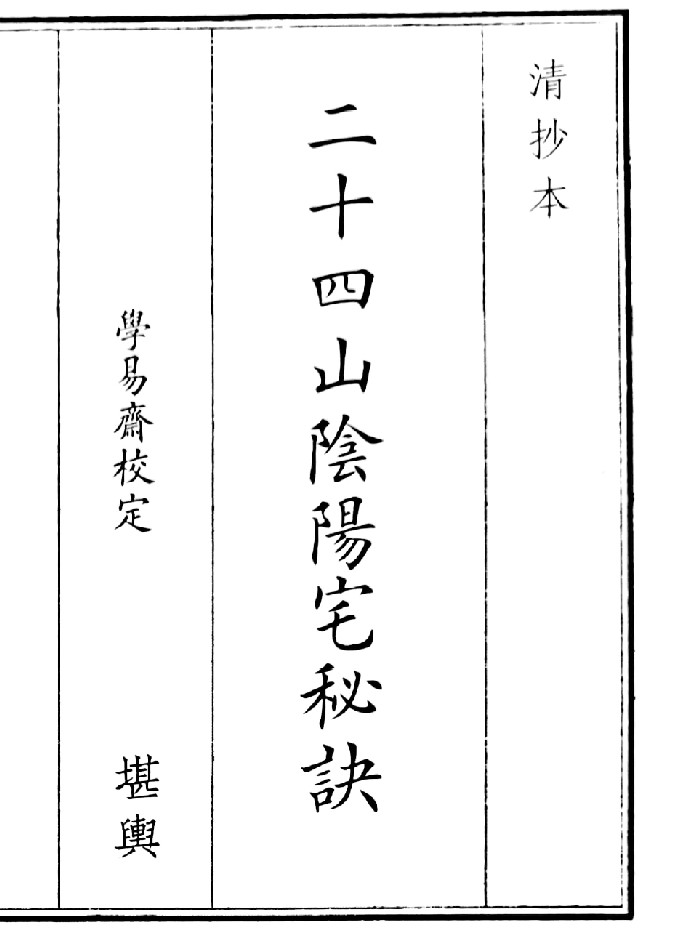 清抄本
二十四山陰陽宅秘訣
學易齋校定
堪輿